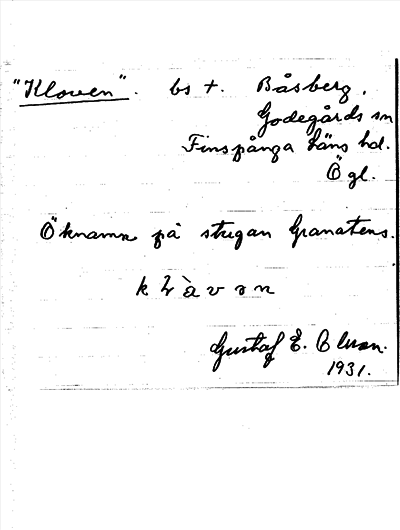 "Kloven". bs t. Båsberg,
Godegårds sn
Finspånga läns hd.
Ögl.
Öknamn på stugan Granatens.
Gustaf E.
1931.